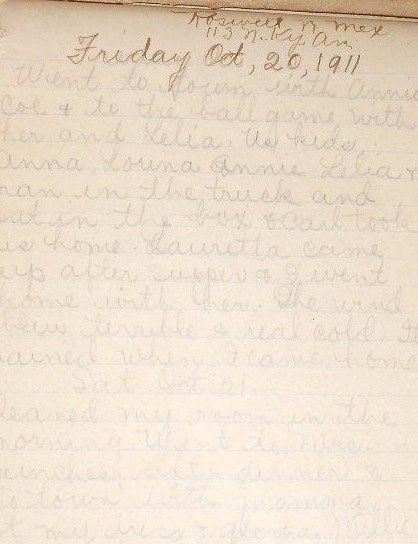 Roswell N. Mex
113 N. Ky Av.
Friday Oct, 20, 1911
Went to town with Annie
Coe & to the ball game with
her and Lelia. Us kids
Anna, Louna Annie Lelia &
ran in the truck and
sat in the box & Carl took
us home. Lauretta came
up after supper & I went
home with her. The wind
blew terrible & real cold. It
rained when I came home
Sat Oct 21.
leaned my room in the
morning Went to Mrs.
dinner &
to town with mamma,
t my dress